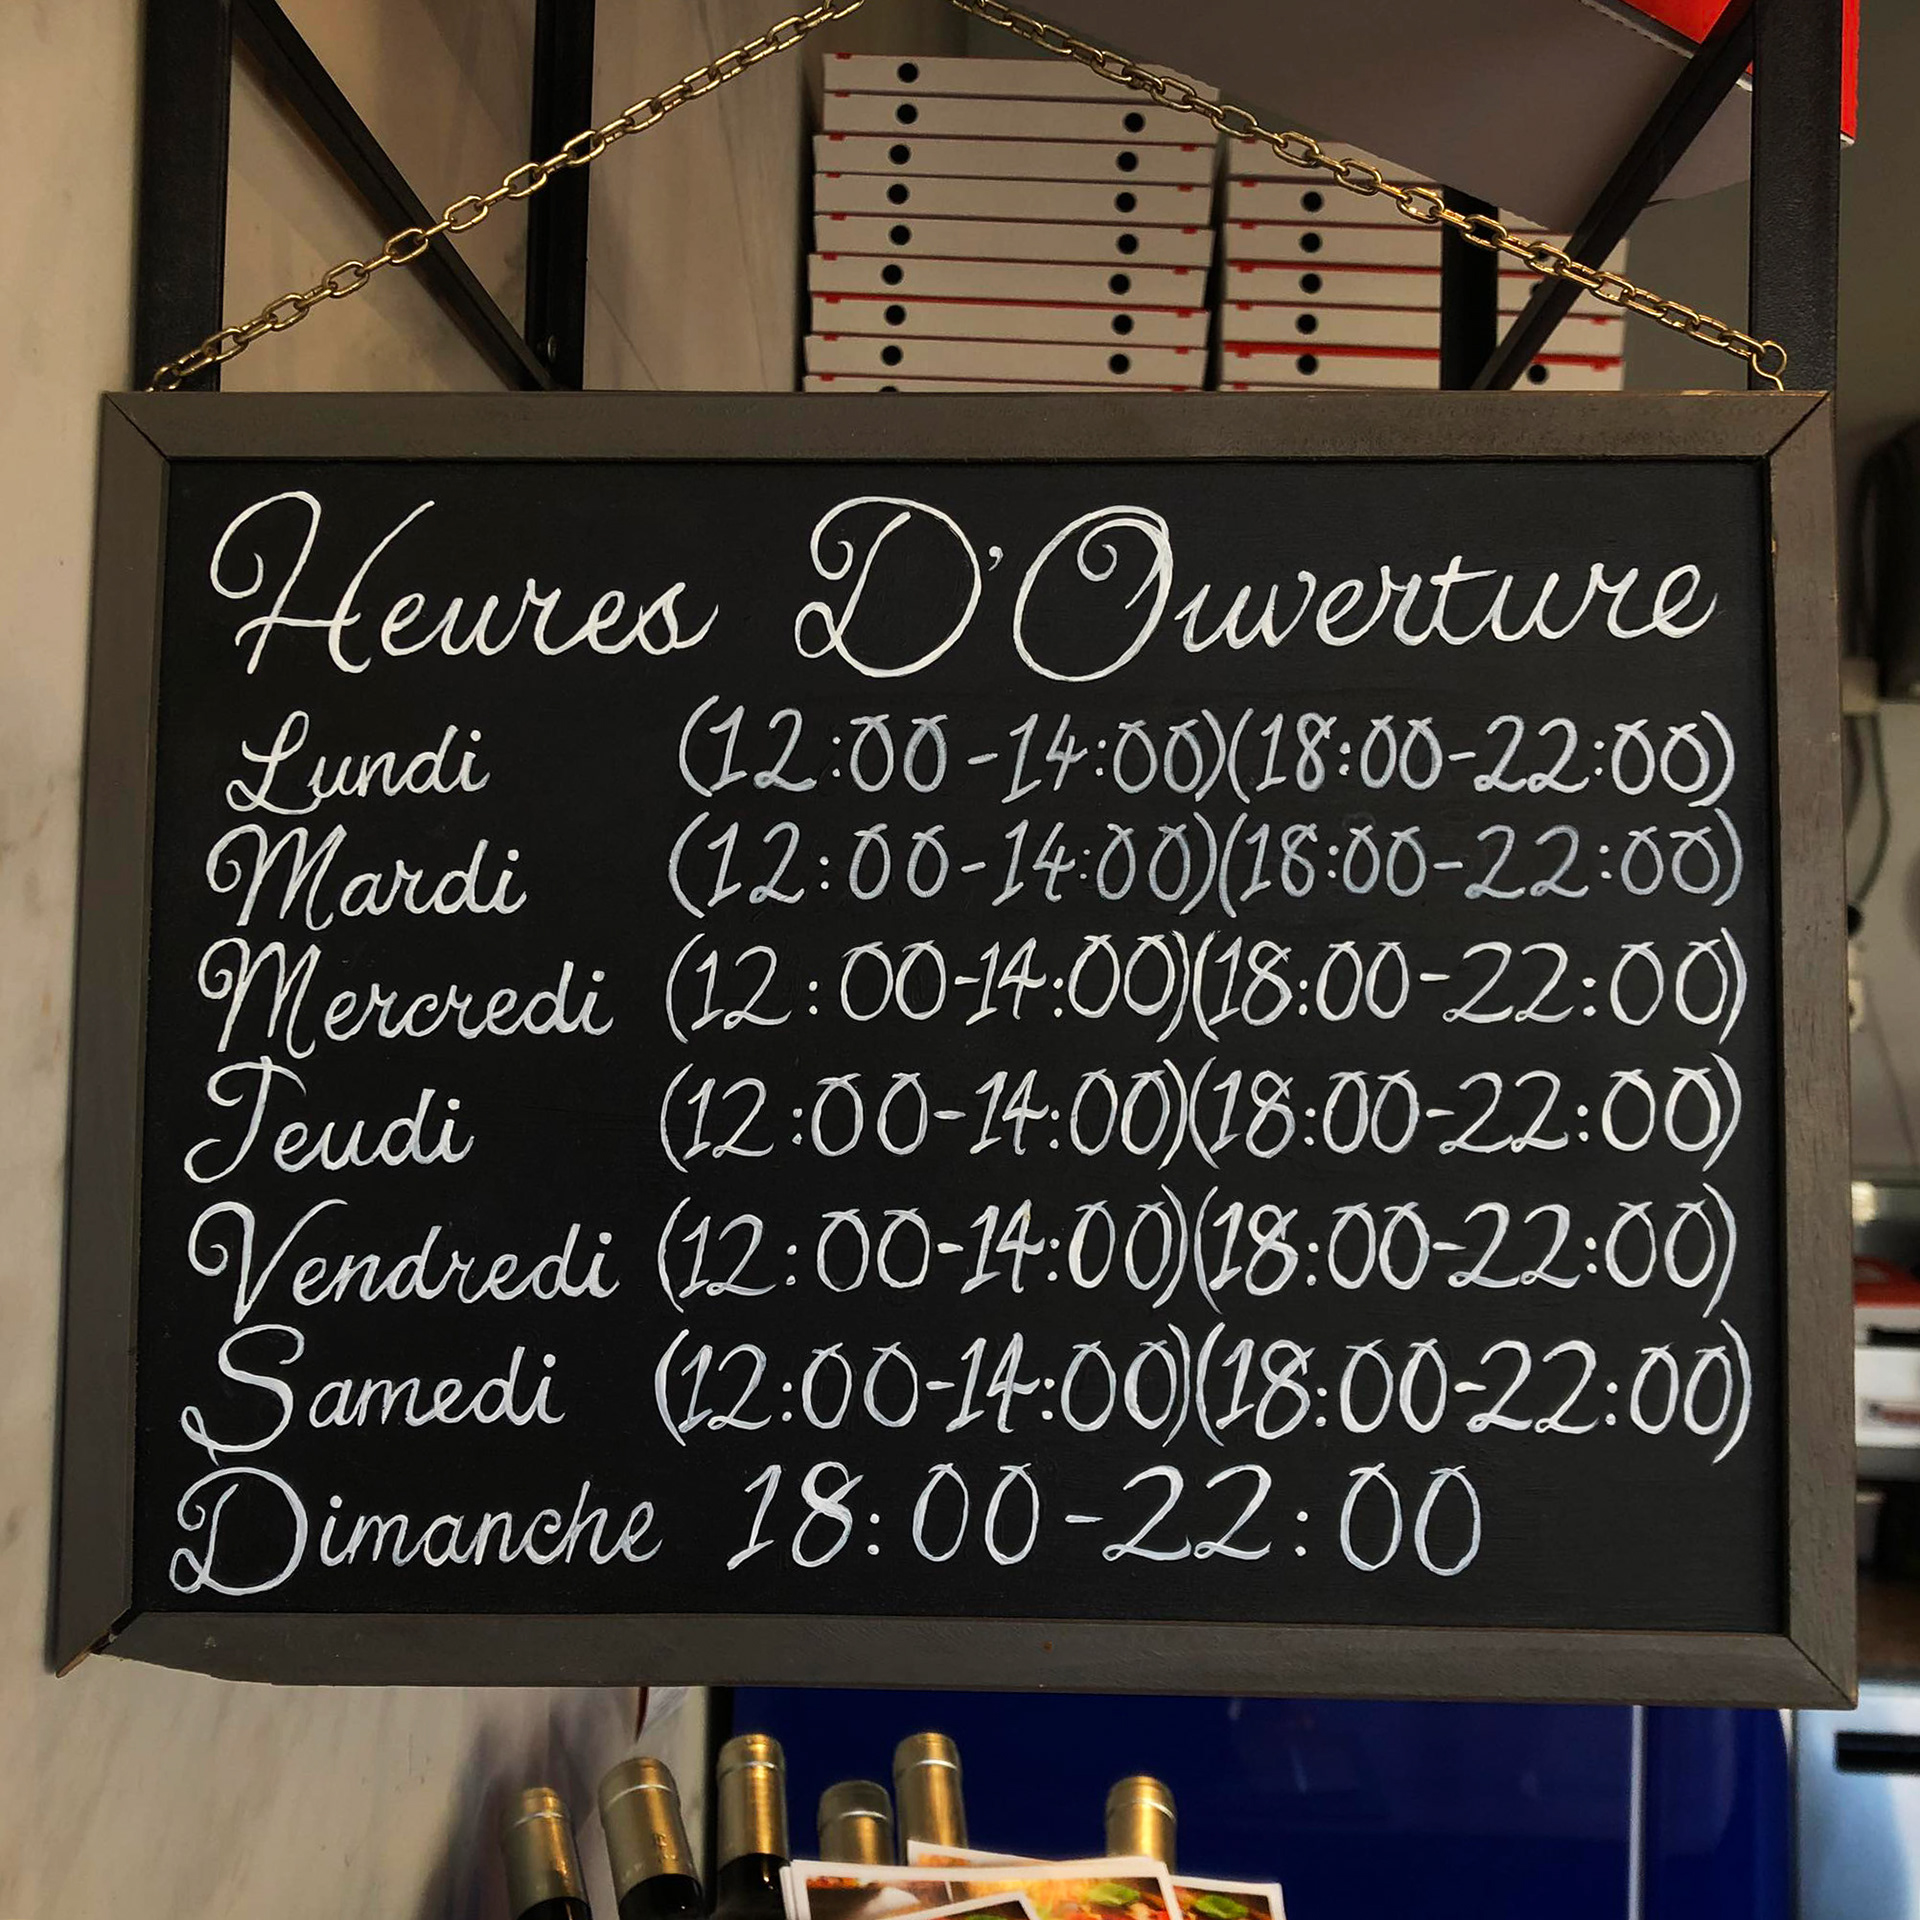 Heures D'Ouverture
Lundi (12:00-14:00)(18:00-22:00)
Mardi (12:00-14:00)(18:00-22:00)
Mercredi (12:00-14:00)(18:00-22:00)
Jeudi (12:00-14:00)(18:00-22:00)
Vendredi (12:00-14:00)(18:00-22:00)
Samedi (12:00-14:00)(18:00-22:00)
Dimanche 18:00-22:00